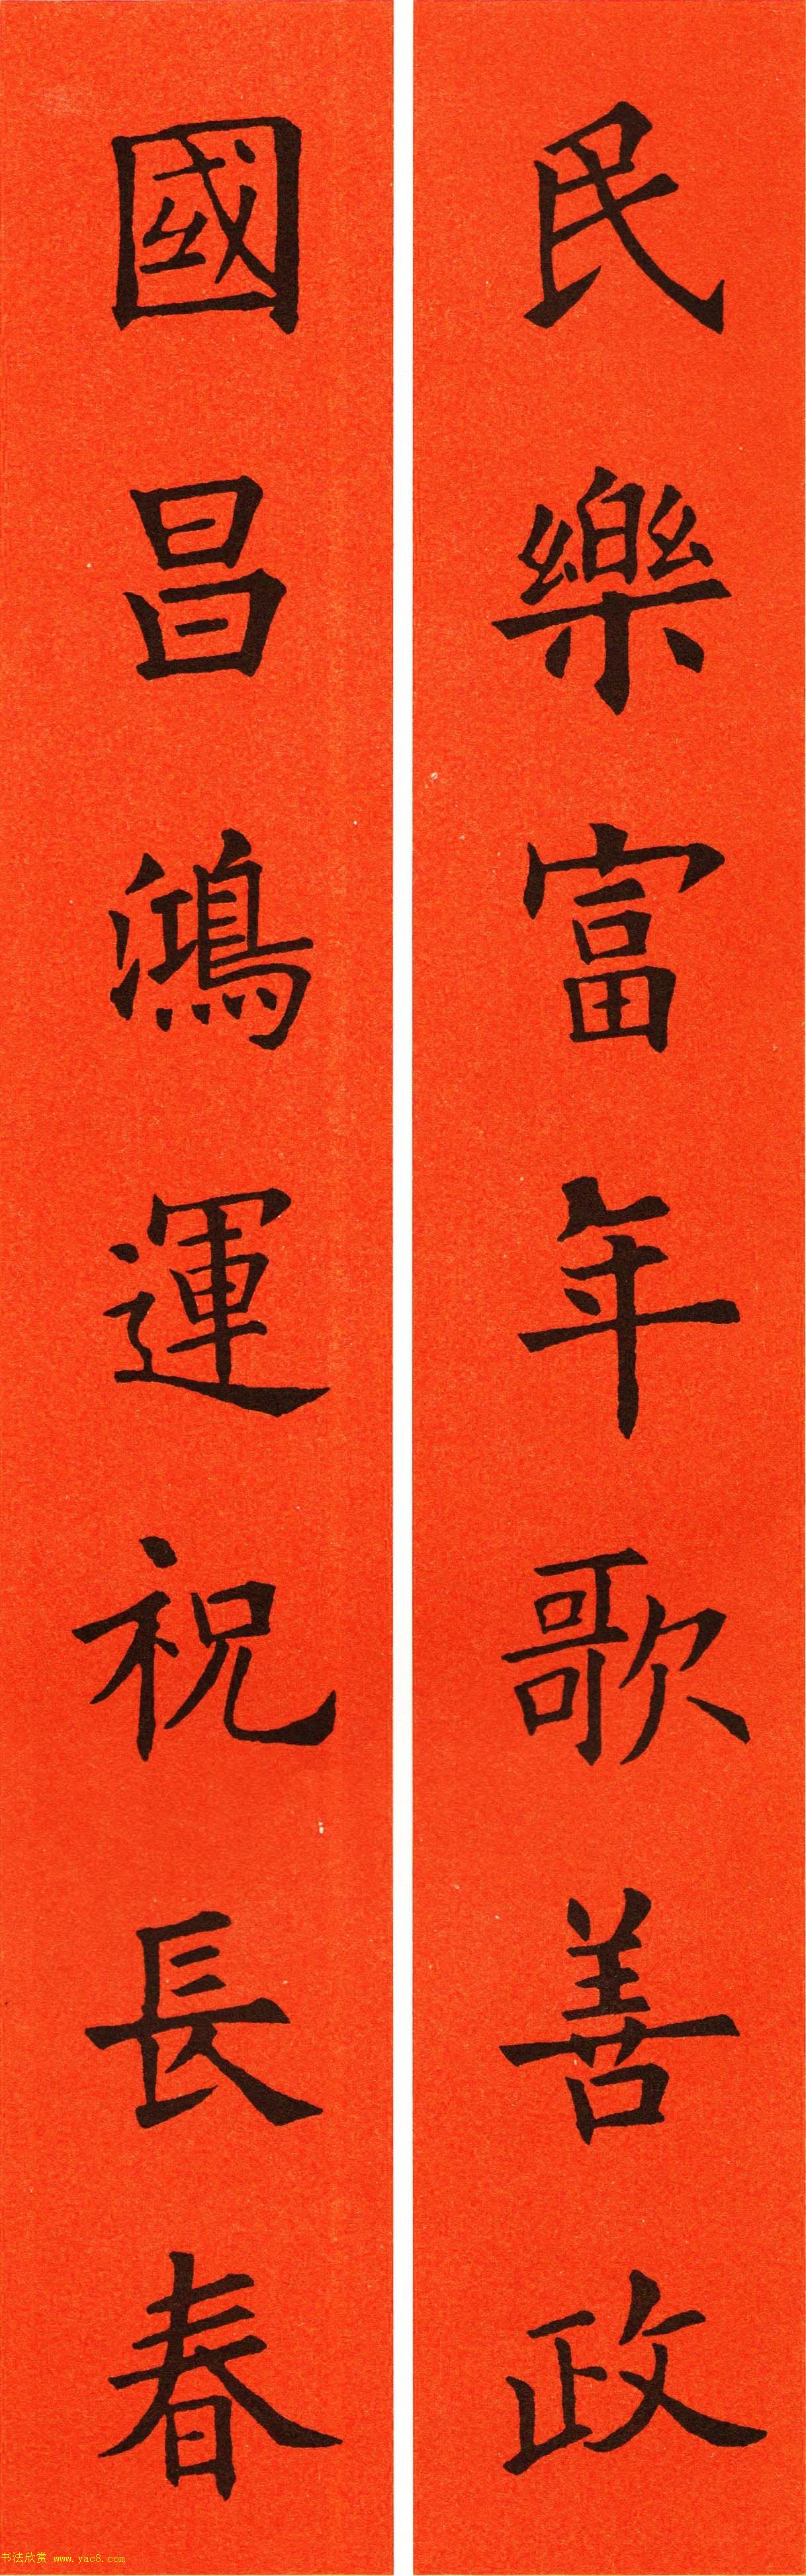 民樂富年歌善政
國昌鴻運祝長春
书法欣赏 www.yac8.com